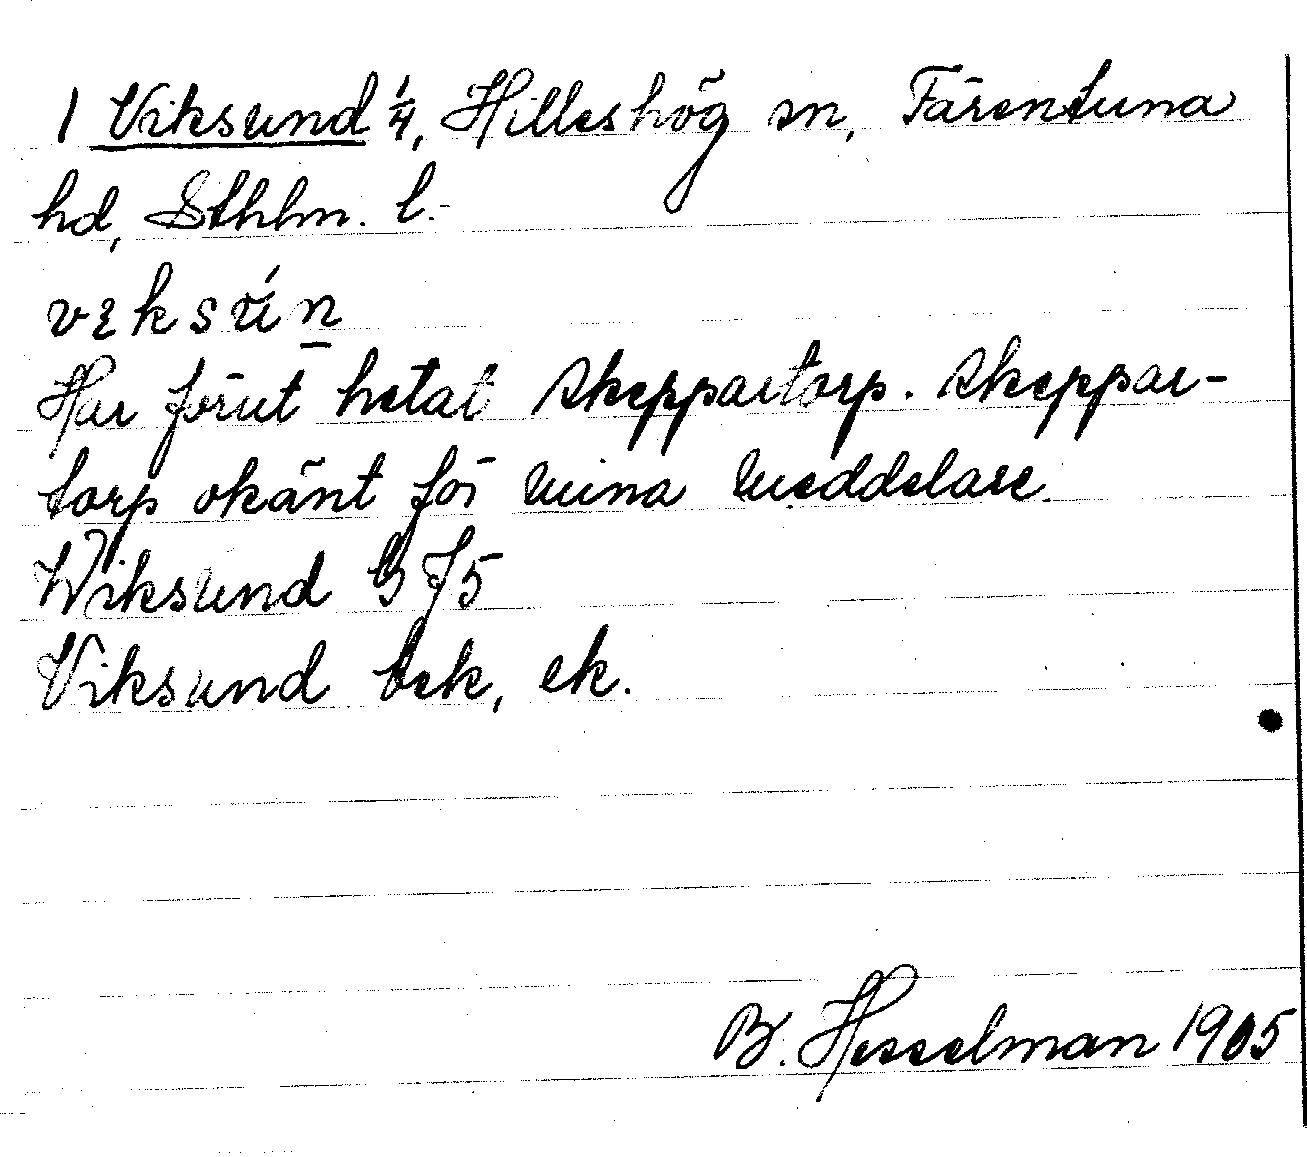 1 Viksund 1/4, Hilleshög sn, Färentuna
hd, Sthlm. l.
Har förut hetat Skeppartorp. Skeppar-
torp okänt för mina meddelare.
Wiksund GJ5
Viksund bek, ek.
B. Hesselman 1905